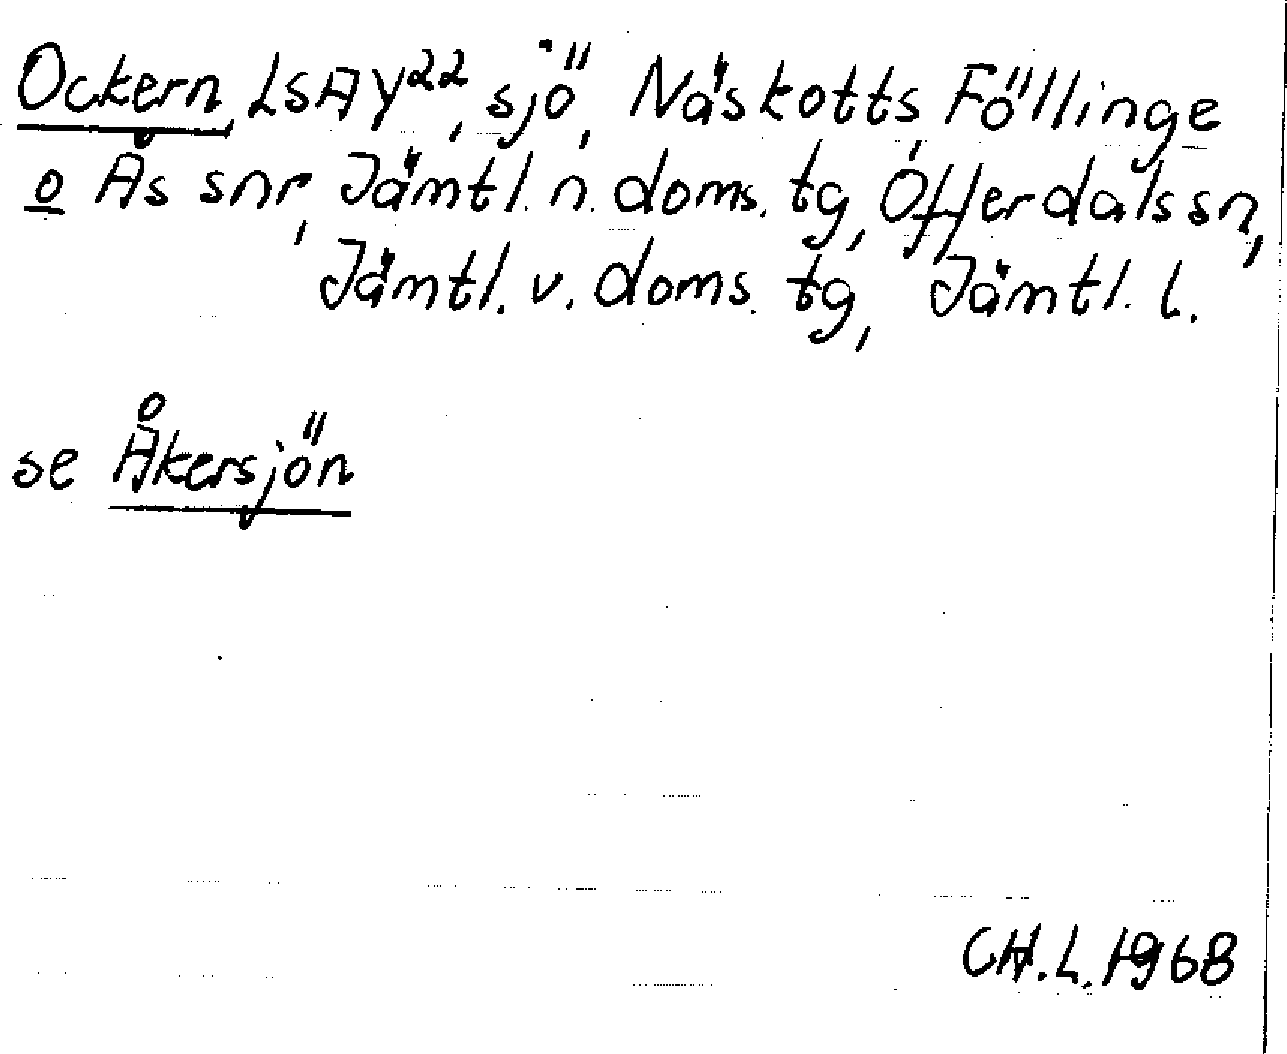 Ockern, LSA Y22, sjö, Näskotts, Föllinge
o Ås snr, Jämtl. n. doms. tg, Offerdals sn,
Jämtl. v. doms. tg, Jämtl. l.
se Åkersjön
CH.L. 1968